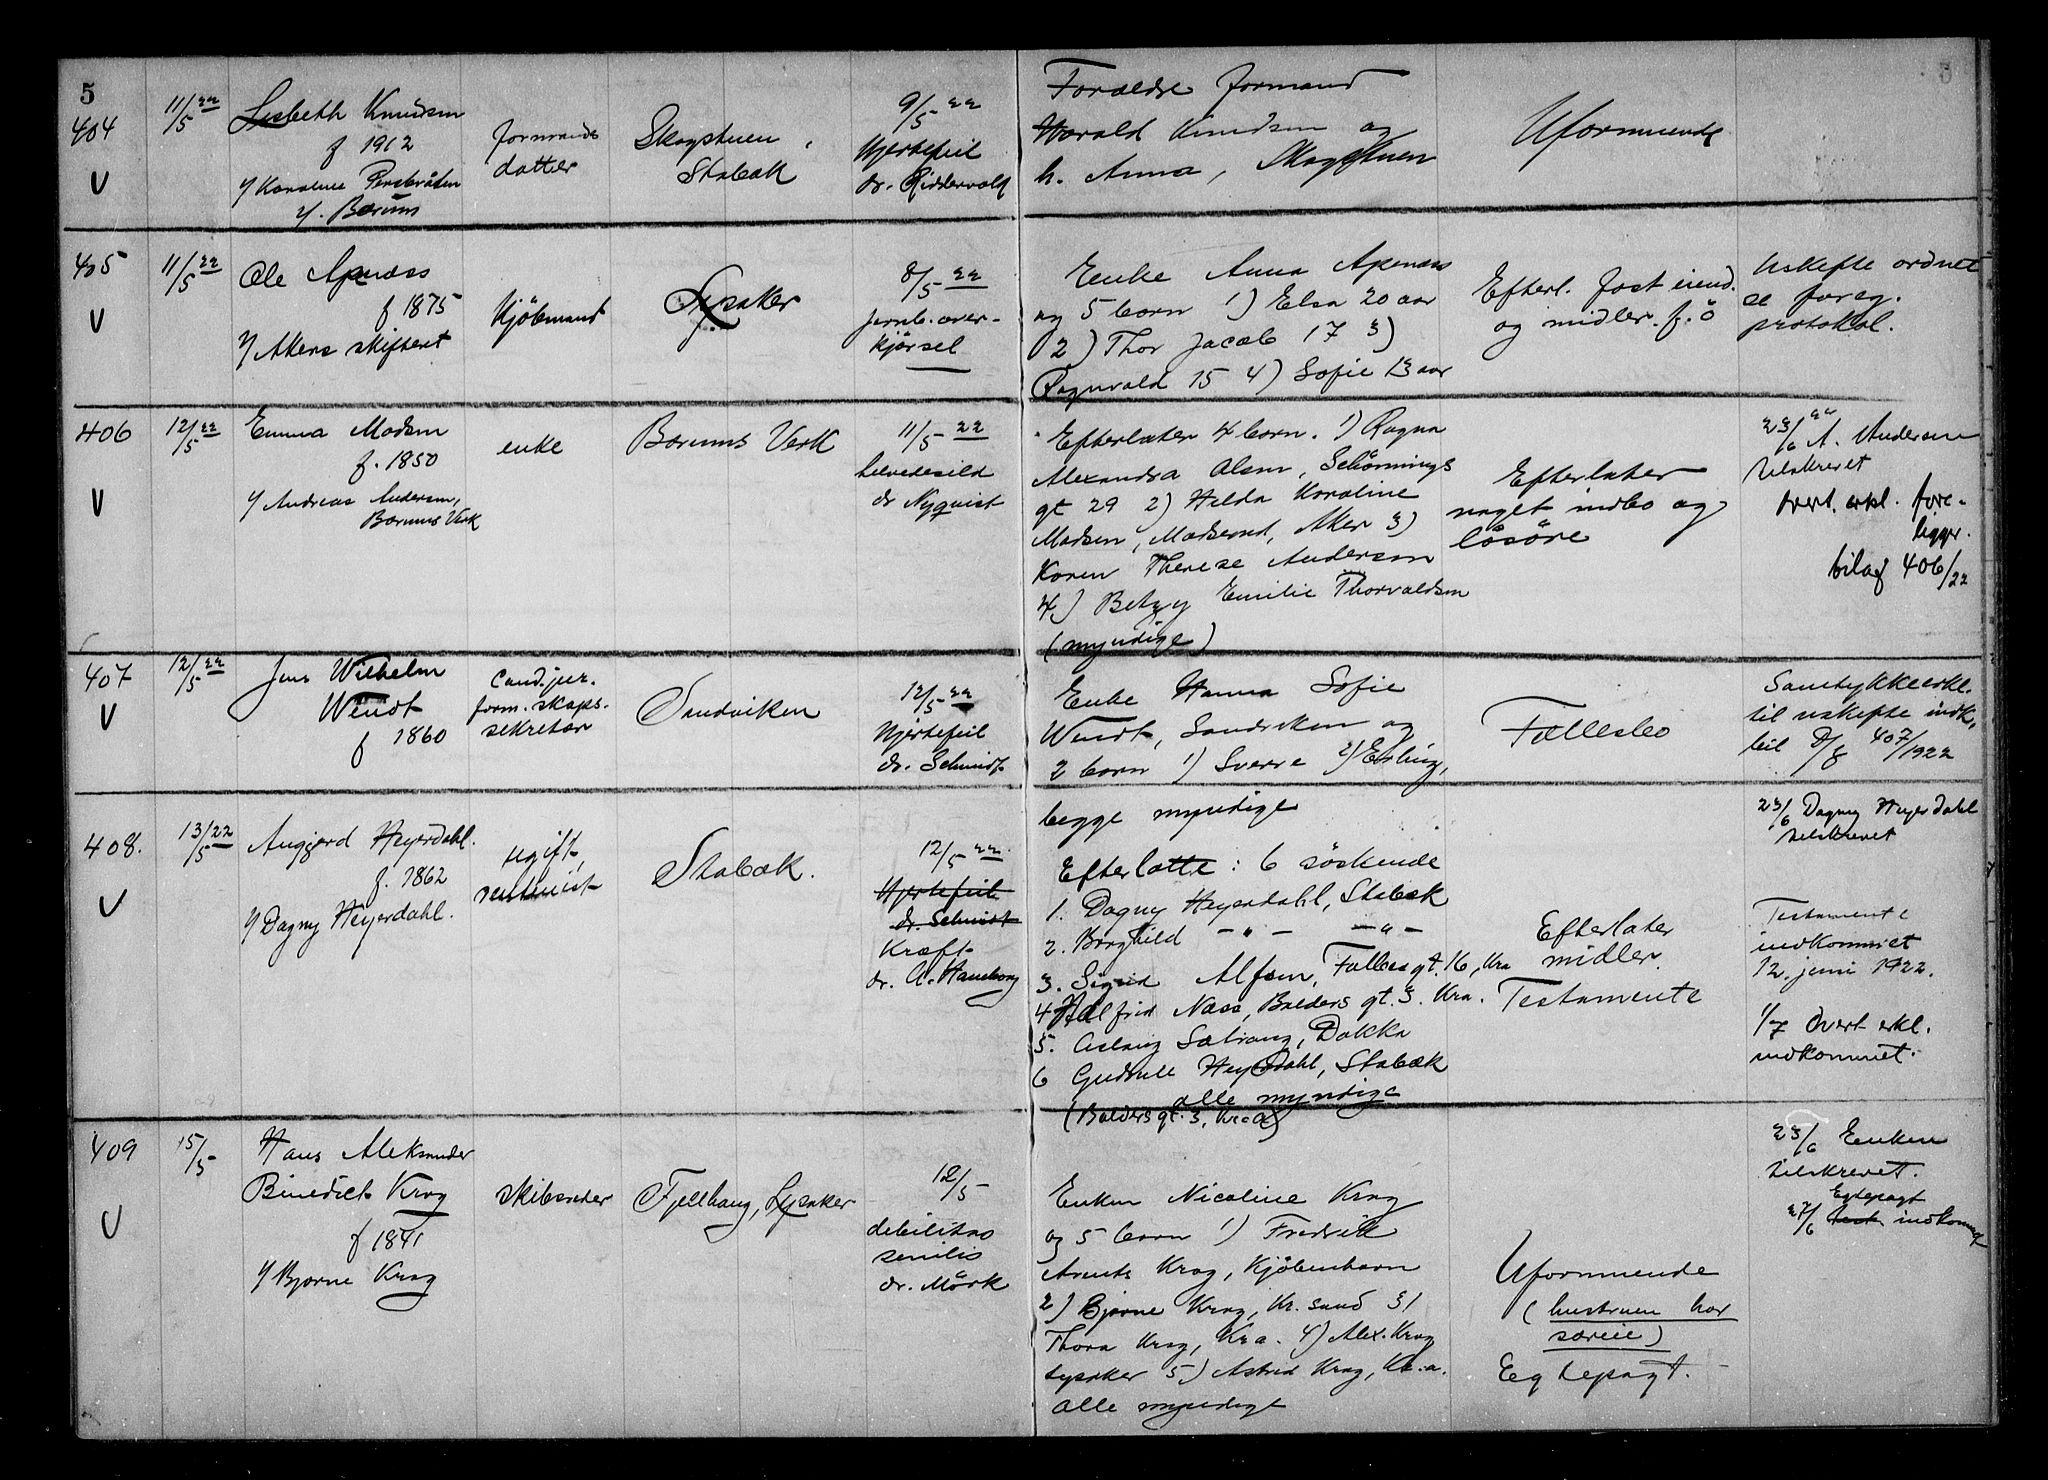 5
404
V
11/5 22
Lisbeth Knudsen
f 1912
v/ Karoline
v/. Bærums
formands
datter
Skogstuen,
Stabæk
9/5 22
Hjertefeil
dr. Riddervold
Forældre formand
Harald Knudsen og
h. Anna, Skogstuen
Uformuende
405
V
11/5 22
Ole Apenæss
f 1875
v/ Akers skifteret
Kjöbmand
Lysaker
8/5 22
jernb.over-
kjørsel
Enke Anna Apenæs
og 5 børn 1) Elsa 20 aar
2) Thor Jacob 17 3)
Ragnvald 15 4) Sofie 13 aar
Efterl. fast eiend.
og midler. f. ö
Uskifte ordnet
se foreg.
protokol.
406
V
12/5 22
Emma Madsen
f. 1850
v/ Andreas Andersen,
Bærums Verk
enke
Bærums Verk
11/5 22
helvedesild
dr Nyquist
Efterlater 4 børn. 1) Ragna
Alexandra Olsen, Schönnings
gt 29 2) Hilda Karoline
Madsen, Madserud, Aker 3)
Karen Therese Andersen
4) Betzy Emilie Thorvaldsen
(myndige)
Efterlater
noget indbo og
løsöre
23/6 22 A. Andersen
tilskrevet
overt. erkl. fore-
ligger.
bilag 406/22
407
V
12/5 22
Jens Wilhelm
Wendt
f 1860
Cand.jur.
form.skaps.
sekretær
Sandviken
12/5 22
Hjertefeil
dr. Schmidt
Enke Hanna Sofie
Wendt, Sandviken og
2 børn 1) Sverre 2) Erling,
begge myndige
Fællesbo
Samtykkeerkl.
til uskifte indk,
bil 407/1922
408.
V
13/5 22
Angjerd Heyerdahl.
f. 1862
v/ Dagny Heyerdahl.
ugift,
rentenist
Stabæk.
12/5 22
Hjertefeil
dr. Schmidt
Kræft
dr. A. Haneborg
Efterlatte: 6 söskende
1. Dagny Heyerdahl, Stabæk
2. Borghild - " - - " -
3. Sigrid Alfsen, gt. 16, Kra
4 Halfrid Næss, Balders gt. 3. Kra.
5. Aslaug Sætrang, Dokka
6 Heyerdahl, Stabæk
alle myndige
(Balders gt. 3, Kr.a)
Efterlater
midler.
Testamente
23/6 Dagny Heyerdahl
tilskrevet
Testamente
indkommet
12. juni 1922.
1/7 Overt erkl.
indkommet.
409
V
15/5
Hans Aleksander
Binedict Krag
f 1841
v/ Bjarne Krag
skibsreder
Fjellhaug, Lysaker
12/5
debilitas
senilis
dr. Mörk
Enken Nicoline Krag
og 5 børn 1) Fredrik
Arents Krag, Kjöbenhavn
2) Bjarne Krag, Kr.sand 3)
Thora Krag, Kra. 4) Alex. Krag
Lysaker 5) Astrid Krag, Kr.a.
alle myndige
Uformuende
(hustruen har
særeie)
Egtepagt.
23/6 Enken
tilskrevet.
Egtepagt
27/6 test. indkommet